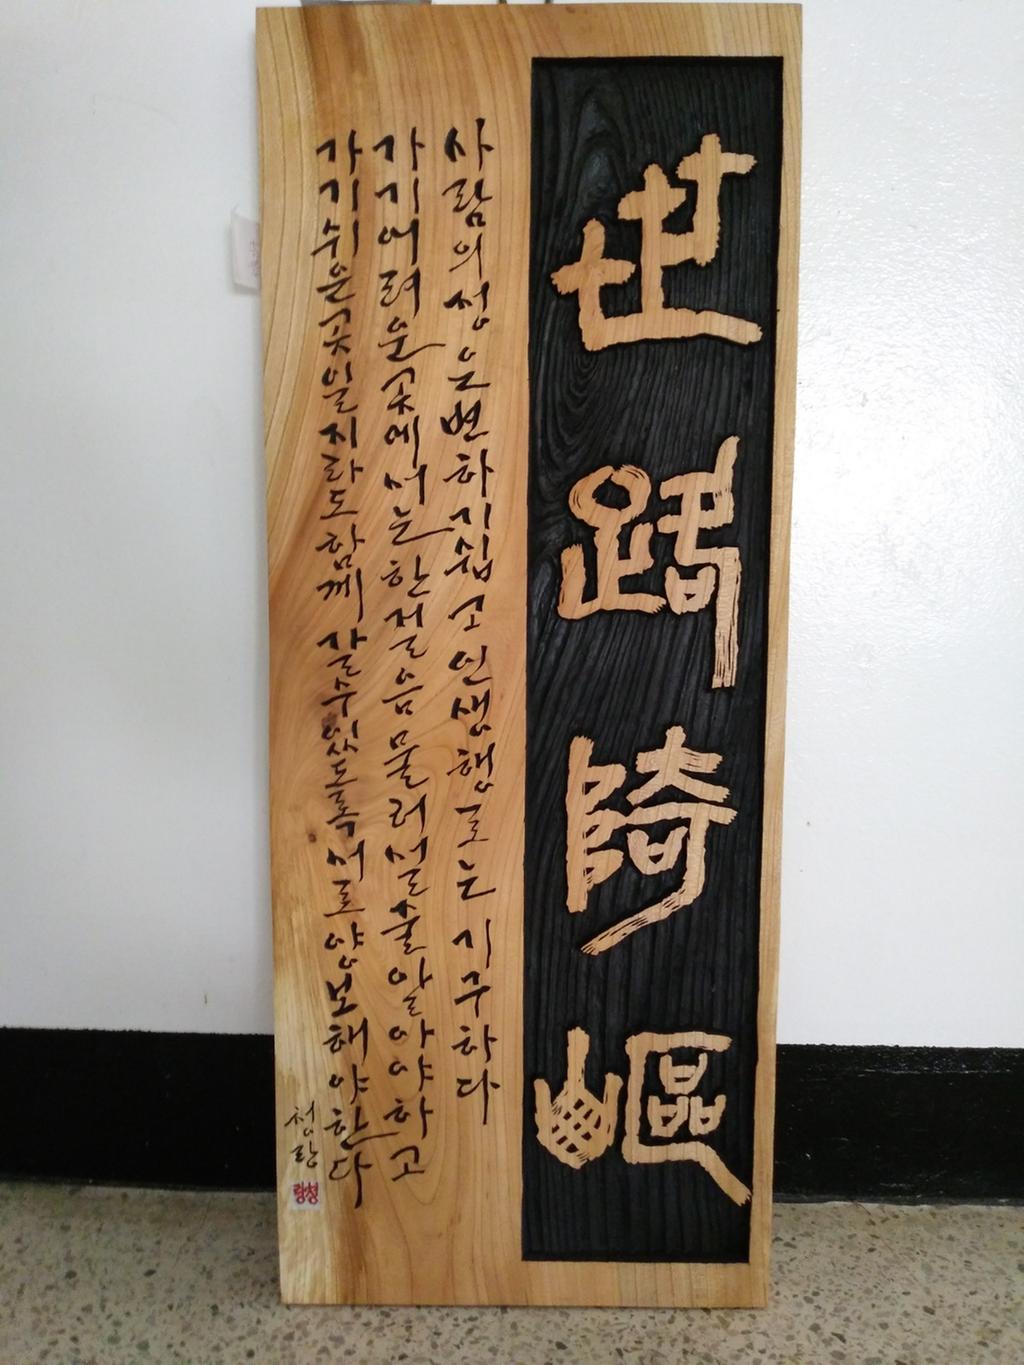 世路陭嶇
사람의 정은 변하기 쉽고 인생 행로는 기구하다
가기 어려운 곳에서는 한걸음 물러설 줄 알아야 하고
가기 쉬운 곳일지라도 함께 갈 수 있도록 서로 양보해야 한다
청랑
청랑